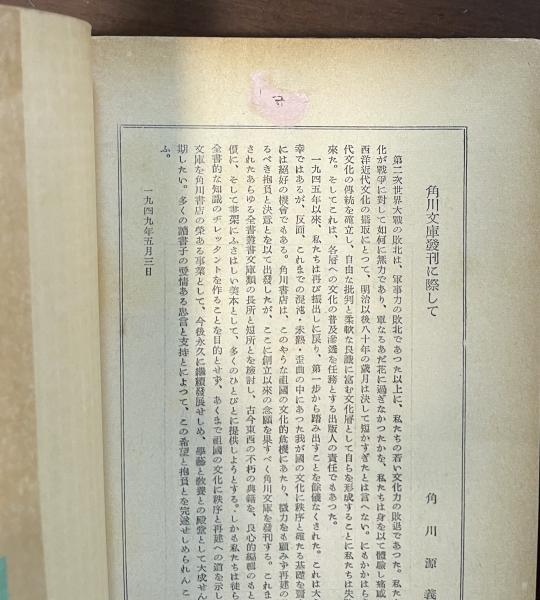 角川文庫發刊に際して
角川源義
第二次世界大戰の敗北は、軍事力の敗北であつた以上に、私たちの若い文化力の敗退であつた。私た
化が戰爭に對して如何に無力であり、單なるあだ花に過ぎなかつたかを、私たちは身を以て體驗し痛感
西洋近代文化の攝取にとつて、明治以後八十年の歲月は決して短かすぎたとは言へない。にもかかはら
代文化の傳統を確立し、自由な批判と柔軟な良識に富む文化層として自らを形成することに私たちは失
來た。そしてこれは、各層への文化の普及滲透を任務とする出版人の責任でもあつた。
一九四五年以來、私たちは再び振出しに戾り、第一步から踏み出すことを餘儀なくされた。これは大
幸ではあるが、反面、これまでの混沌・未熟・歪曲の中にあつた我が國の文化に秩序と確たる基礎を齎
には絕好の機會でもある。角川書店は、このやうな祖國の文化的危機にあたり、微力をも顧みず再建の
るべき抱負と決意とを以て出發したが、ここに創立以來の念願を果すべく角川文庫を發刊する。これま
されたあらゆる全書叢書文庫類の長所と短所とを檢討し、古今東西の不朽の典籍を、良心的編輯のもと
價に、そして書架にふさはしい美本として、多くのひとびとに提供しようとする。しかも私たちは徒ら
全書的な知識のヂレッタントを作ることを目的とせず、あくまで祖國の文化に秩序と再建への道を示し
文庫を角川書店の榮ある事業として、今後永久に繼續發展せしめ、學藝と敎養との殿堂として大成せん
期したい。多くの讀書子の愛情ある忠言と支持とによつて、この希望と抱負とを完遂せしめられんこ
ふ。
一九四九年五月三日